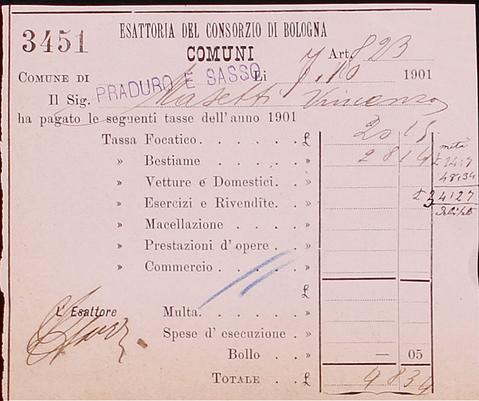 3451
ESATTORIA DEL CONSORZIO DI BOLOGNA
COMUNI
Art. 823
COMUNE DI PRADURO E SASSO Li 7.10 1901
Il Sig. Masetti Vincenzo
ha pagato le seguenti tasse dell'anno 1901
Tassa Focatico. £ 20 15
» Bestiame » 28 14
» Vetture e Domestici. »
» Esercizi e Rivendite. »
» Macellazione »
» Prestazioni d'opere »
» Commercio »
£
L'Esattore
Multa. »
Spese d'esecuzione »
Bollo » — 05
TOTALE £ 48 34
metà
24.17
48.34
34 27